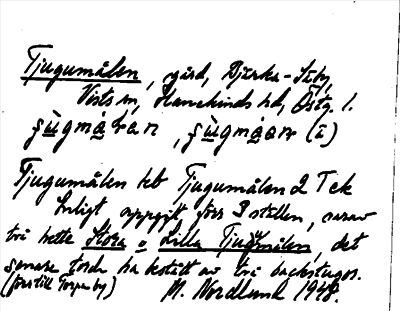 Tjugumålen, gård, Bjärka-Säby,
Vists sn, Hanekinds hd, Östg. l.
Tjugumålen hb Tjugumålen 2 T ek
Enligt uppgift förr 3 ställen, varav
två hette Stora o Lilla Tjugumålen, det
senare torde ha bestått av två backstugor.
M. Nordlund 1948.